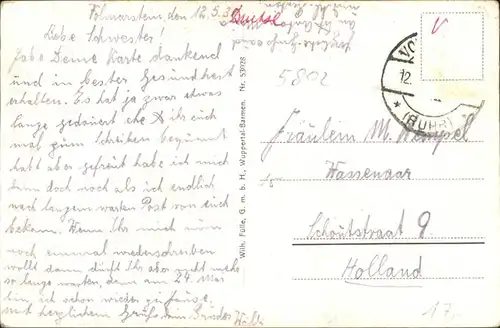 Volmarstein, den 12.5.3
Liebe Schwester!
Habe Deine Karte dankend
und in bester Gesundheit
erhalten. Es hat ja zwar etwas
lange gedauert ehe ihr euch
mal zum Schreiben bequemt
habt aber gefreut habe ich mich
dann doch noch als ich endlich
nach langem warten Post von euch
bekam. Wenn Ihr mich nun
noch einmal wiederschreiben
wollt dann dürft Ihr aber nicht mehr
so lange warten, denn am 24. Mai
bin ich schon wieder zuhause.
mit herzlichem Gruß, euer Bruder
Wilh. Fülle, G. m. b. H., Wuppertal-Barmen. Nr. 53928
5802
VO
12.
(RUHR)
Fräulein M. Hempel
Wassenaar
Schoutstraat 9
Holland
17.